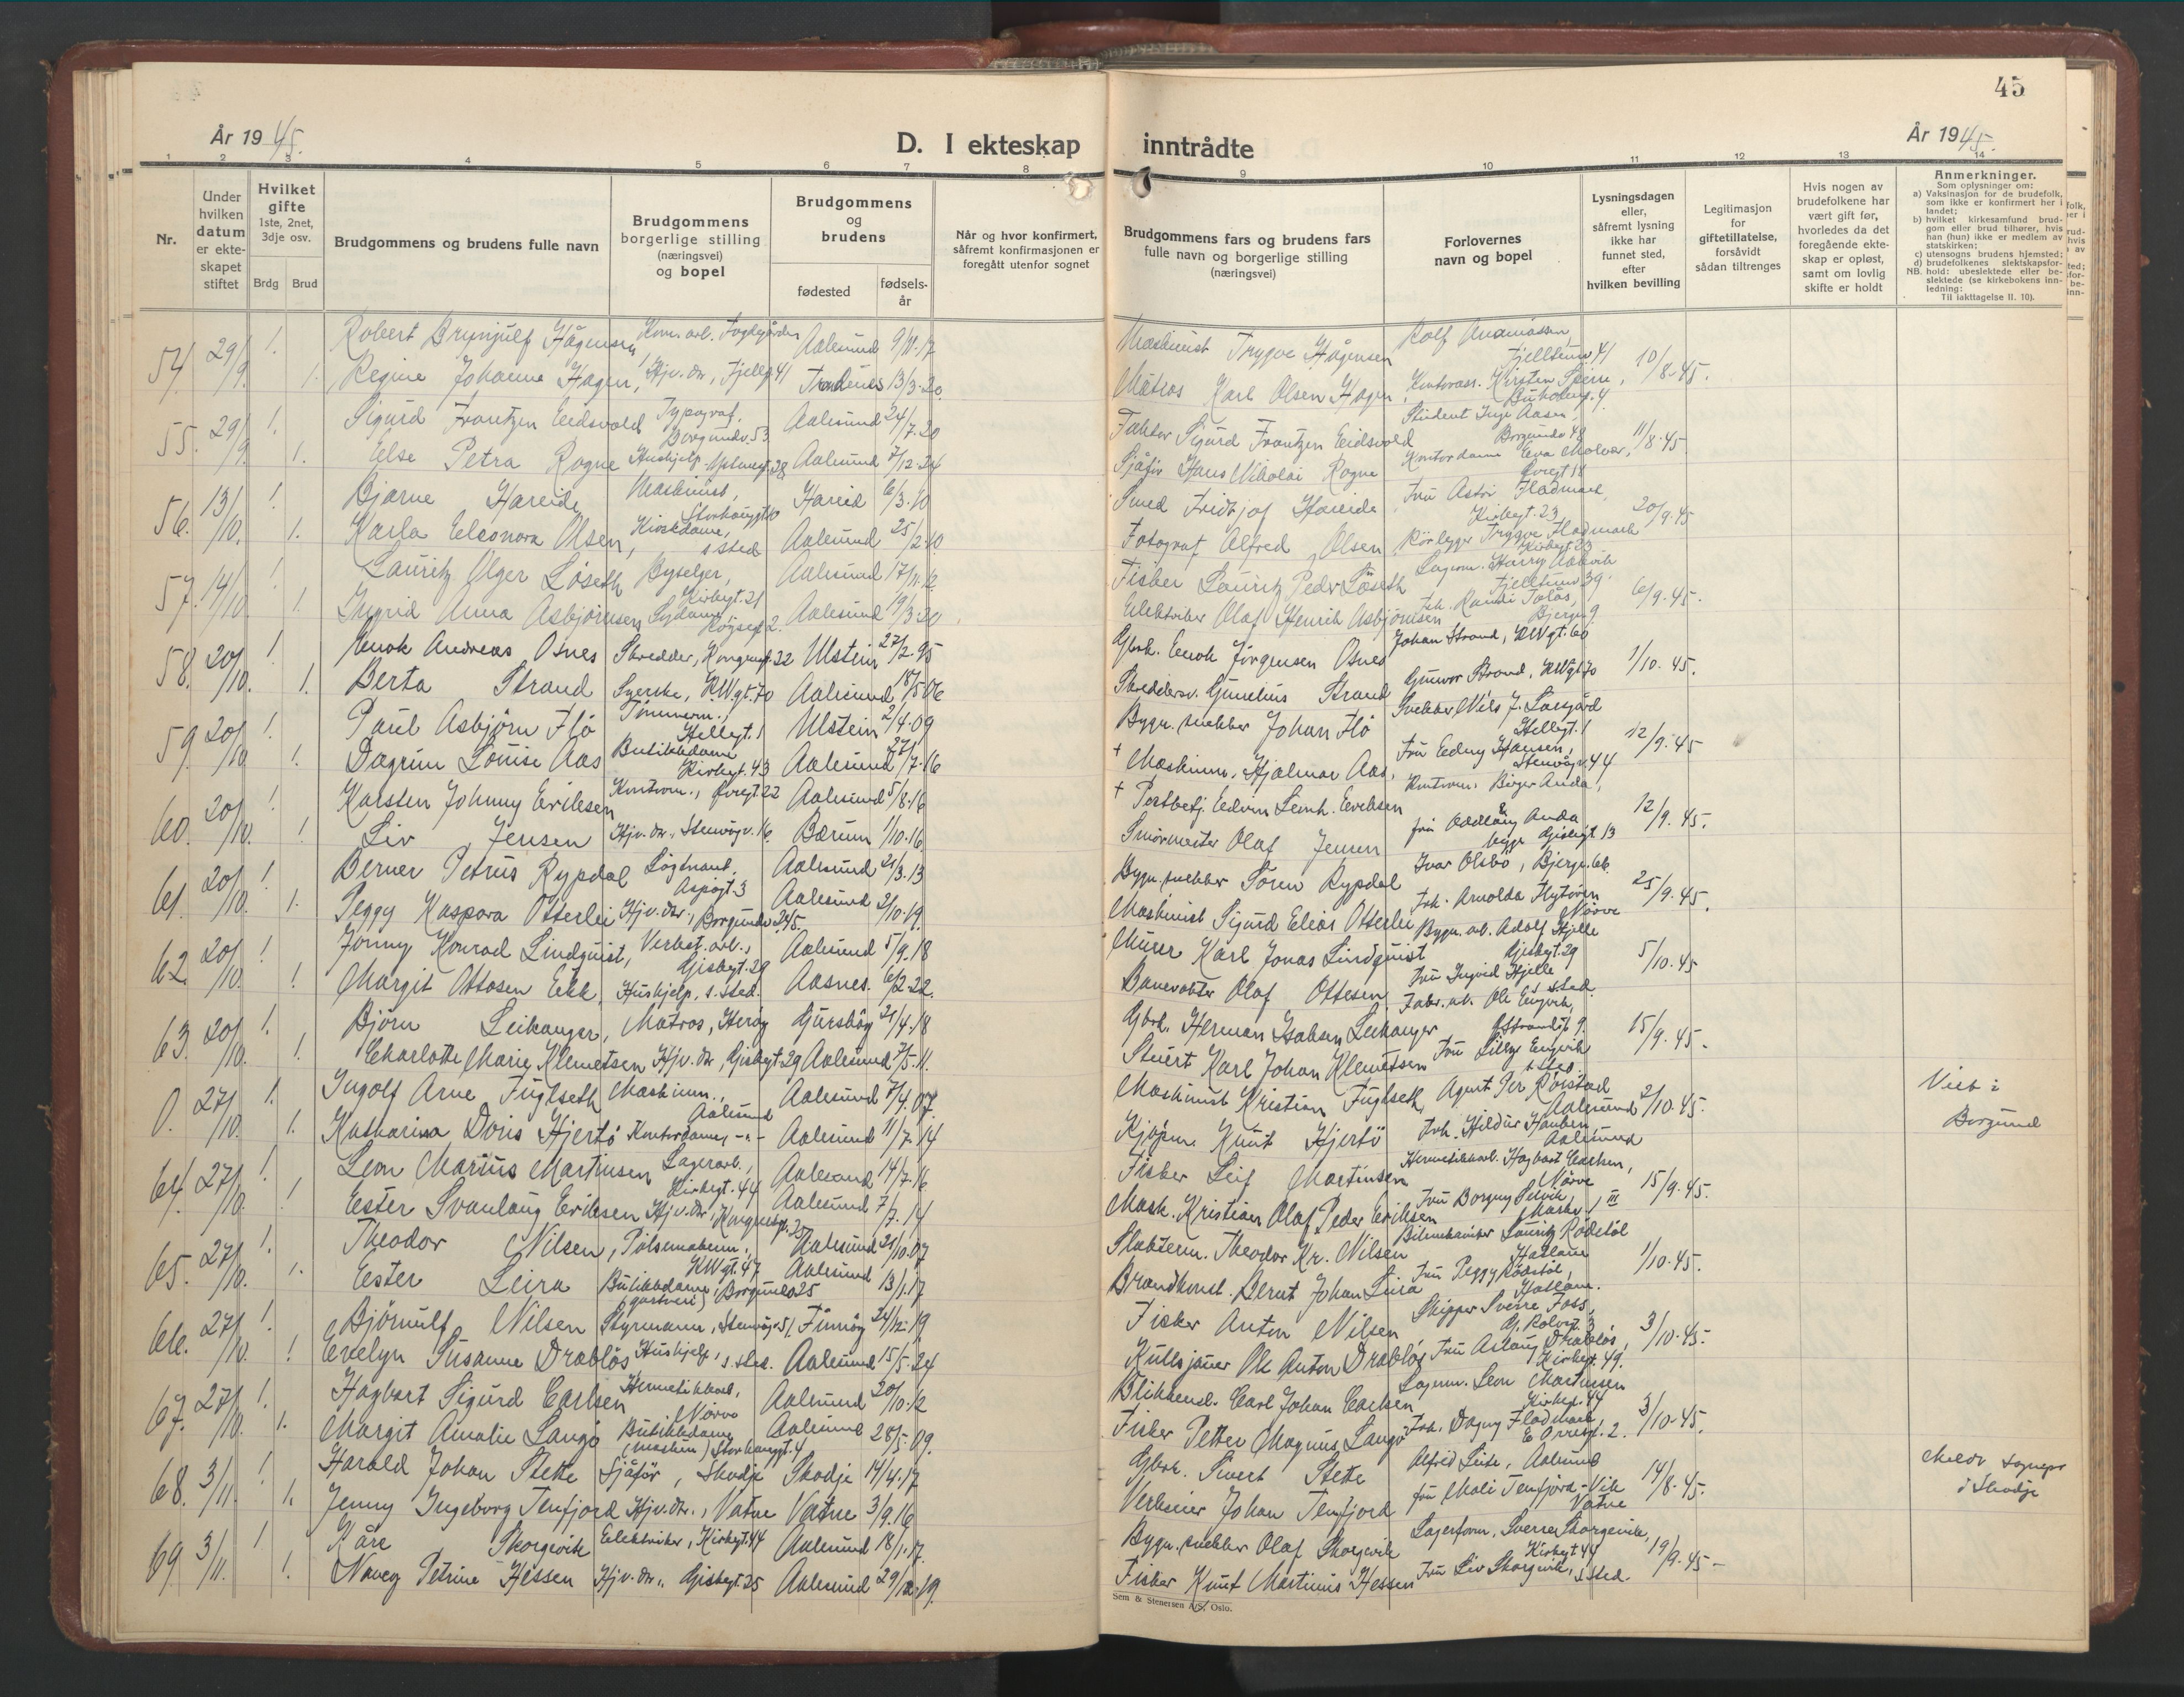 45
År 1945.
D. I ekteskap inntrådte
År 1945.
1 2 3 4 5 6 7 8 9 10 11 12 13 14
Nr.
Under hvilken datum er ekteskapet stiftet
Hvilket gifte 1ste, 2net, 3dje osv.
Brdg Brud
Brudgommens og brudens fulle navn
Brudgommens borgerlige stilling (næringsvei) og bopel
Brudgommens og brudens
fødested
fødselsår
Når og hvor konfirmert, såfremt konfirmasjonen er foregått utenfor sognet
Brudgommens fars og brudens fars fulle navn og borgerlige stilling (næringsvei)
Forlovernes navn og bopel
Lysningsdagen eller, såfremt lysning ikke har funnet sted, efter hvilken bevilling
Legitimasjon for giftetillatelse, forsåvidt sådan tiltrenges
Hvis nogen av brudefolkene har vært gift før, hvorledes da det foregående ekteskap er opløst, samt om lovlig skifte er holdt
Anmerkninger.
Som oplysninger om:
a) Vaksinasjon for de brudefolk, som ikke er konfirmert her i landet;
b) hvilket kirkesamfund brudgom eller brud tilhører, hvis han (hun) ikke er medlem av statskirken;
c) utensogns brudens hjemsted;
d) brudefolkenes slektskapsforhold: ubeslektede eller beslektede (se kirkebokens innledning:
NB. Til iakttagelse II. 10).
54 29/9. 1. Robert Brynjulf Hågensen Kom. arb. Aalesund 9/11.17 Maskinist Trygve Hågensen Rolf Fjelltunv 41 10/8-45.
1. Regine Johanne Hagen, Hjv. dtr, Fjellg. 41 13/3-20 Matros Karl Olsen Hagen, Kirsten
55. 29/9. 1. Sigurd Frantzen Eidsvold Typograf, Borgundv. 53 Aalesund 24/7.20 Faktor Sigurd Frantzen Eidsvold Student Inge Aasen, Borgundv 48 11/8-45.
1. Else Petra Rogne Hushjelp Aalesund 7/12-24 Sjåfør Hans Nikolai Rogne Kontordame Eva Molvær,
56. 13/10. 1. Bjarne Hareide Maskinist, Storhauggt 10 Hareid 6/3.10 Smed Fridtjof Hareide Fru Astri Fladmark, Kirkegt. 23 20/9.45
1. Karla Eleonora Olsen, Kioskdame, s sted Aalesund 25/2.10 Fotograf Alfred Olsen Rörlegger Trygve Fladmark Kirkegt 23
57. 14/10. 1. Lauritz Olger Löseth Byselger, Kirkegt. 21 Aalesund 17/11.12 Fisker Lauritz Peder Löseth Lagerm. Harry Fjelltunv 39. 6/9-45.
1. Ingrid Anna Asbjörnsen Sydame, Röysegt 2. Aalesund 19/3.20 Elektriker Olaf Henrik Asbjörnsen Frk. Randi
58. 20/10. 1. Enok Andreas Osnes Skredder, Kongensgt. 22 Ulstein 27/2.95 Gbrk. Enok Jörgensen Osnes Johan Strand, KWgt. 60 1/10.45.
1. Berta Strand Syerske, KW.gt. 70 Aalesund 18/5.06 Skredderm. Gunelius Strand Gunvor Strand, KWgt 70
59. 20/10 1. Paul Asbjörn Flö Tömmerm., Hellegt. 1 Ulstein 2/4.09 Bygn. snekker Johan Flö Snekker Nils J. Hellegt. 1 12/9.45
1. Dagrun Louise Aas Butikkdame Kirkegt. 43 Aalesund 27/7.16 + Maskinm. Hjalmar Aas. Fru Hansen, Stenvågv. 44
60. 20/10. 1. Karsten Johnny Eriksen Kontorm., Aalesund 5/8.16 + Postbetj. Edvin Leonh. Eriksen Kontorm. Birger Anda, 12/9.45.
1. Liv Jensen Hjv. dtr., Stenvågv. 16. Bærum 1/10.16 Smörmester Olaf Jensen fru Oddlaug Anda begge Giskegt 13
61. 20/10. 1. Berner Petrus Rypdal Aspögt. 3 Aalesund 21/3.13 Bygn. snekker Sören Rypdal Ivar Olsbö, Bjergv. 66 25/9.45.
1. Peggy Kaspara Otterlei Hjv. dtr., Borgundv 245. Aalesund 2/10.19. Maskinist Sigurd Elias Otterlei Frk. Arnolda Nörve
62. 20/10. 1. Jonny Konrad Lindquist, Verkst. arb., Giskegt. 29 Aalesund 5/9.18 Murer Karl Jonas Lindquist Bygn. arb. Adolf Hjelle Giskegt. 29 5/10.45
1. Margit Ottosen Eik Hushjelp, s. sted. Aasnes. 6/2-22. Banevokter Olaf Ottesen Fru Ingrid Hjelle s. sted.
63. 20/10. 1. Björn Leikanger, Matros, Heröy Gursköy 21/4.18 Gbrk. Herman Isaksen Leikanger Fabr. arb. Ole Engvik, 15/9.45.
1. Charlotte Marie Klemetsen Hjv. dtr, Giskegt 29 Aalesund 7/5.11. Stuert Karl Johan Klemetsen Fru Lilly Engvik s sted.
0. 27/10. 1. Ingolf Arne Fuglseth Maskinm., Aalesund Aalesund 7/4.07. Maskinist Kristian Fuglseth Agent Per Röistad Aalesund 2/10.45. Viet i Borgund
1. Katharina Doris Hjertö Kontordame, -"- Aalesund 11/7.14 Kjöpm. Knut Hjertö Frk. Hildur Aalesund
64. 27/10. 1. Leon Marius Martinsen Lagerarb., Kirkegt. 44 Aalesund 14/7.16 Fisker Leif Martinsen Hermetikkarb. Hagbart Carlsen, Nörve 15/9.45.
1. Ester Svanlaug Eriksen Hjv. dtr, Kongensgt. 25 Aalesund 7/7.14 Mask. Kristian Olaf Peder Eriksen Fru Borgny
65. 27/10. 1. Theodor Nilsen, Pölsemaker, KWgt. 47 Aalesund 21/10.07 Slakterm. Theodor Kr. Nilsen Bilmekaniker Lauritz Rödstöl Hatlane 1/10.45.
1. Ester Leira Butikkdame, (gartneri) Borgundv 25 Aalesund 13/1.17 Brandkonst. Bernt Johan Leira Fru Peggy Rödstöl, Hatlane.
66. 27/10. 1. Björnulf Nilsen Styrmann, Stenvågv 51. Finnöy 24/12.19 Fisker Anton Nilsen Skipper Sverre Foss, 3/10.45.
1. Evelyn Susanne Drablös Hushjelp, s. sted. Aalesund 15/5.24 Kullsjauer Ole Anton Drablös Fru Aslaug Drablös, Kirkegt. 49.
67. 27/10. 1. Hagbart Sigurd Carlsen Hermetikkarb, Nörve Aalesund 20/10.12 Blikkensl. Carl Johan Carlsen Lagerm. Leon Martinsen Kirkegt. 44 3/10.45.
1. Margit Amalie Langö Butikkdame Storhauggt. 4 Aalesund 28/5.09. Fisker Petter Magnus Langö Frk. Dagny Fladmark
68. 3/11. 1. Harald Johan Stette Sjåför, Skodje Skodje 14/4.17 Gbrk. Sivert Stette Alfred Aalesund 14/8.45. Meldt sognepr i Skodje
1. Jenny Ingeborg Tenfjord Hjv. dtr., Vatne Vatne 3/9.16 Verkseier Johan Tenfjord fru Mali Tenfjord-Vik Vatne
69. 3/11. 1 Kåre Skorgevik Elektriker, Kirkegt. 44 Aalesund 18/1.17. Bygn. snekker Olaf Skorgevik Lagerform. Sverre Skorgevik, Kirkegt 44 19/9.45-
1. Nancy Petrine Hessen Hjv. dtr., Giskegt. 25 Aalesund 29/12.19. Fisker Knut Martinus Hessen Fru Liv Skorgevik, s sted.
Sem & Stenersen A/S, Oslo.